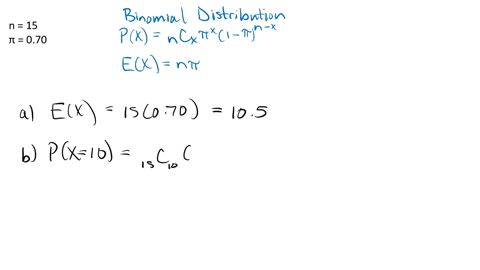 n = 15
π = 0.70
Binomial Distribution
P(X) = nCₓ πˣ (1-π)ⁿ⁻ˣ
E(X) = nπ
a) E(X) = 15(0.70) = 10.5
b) P(X=10) = ₁₅C₁₀ (